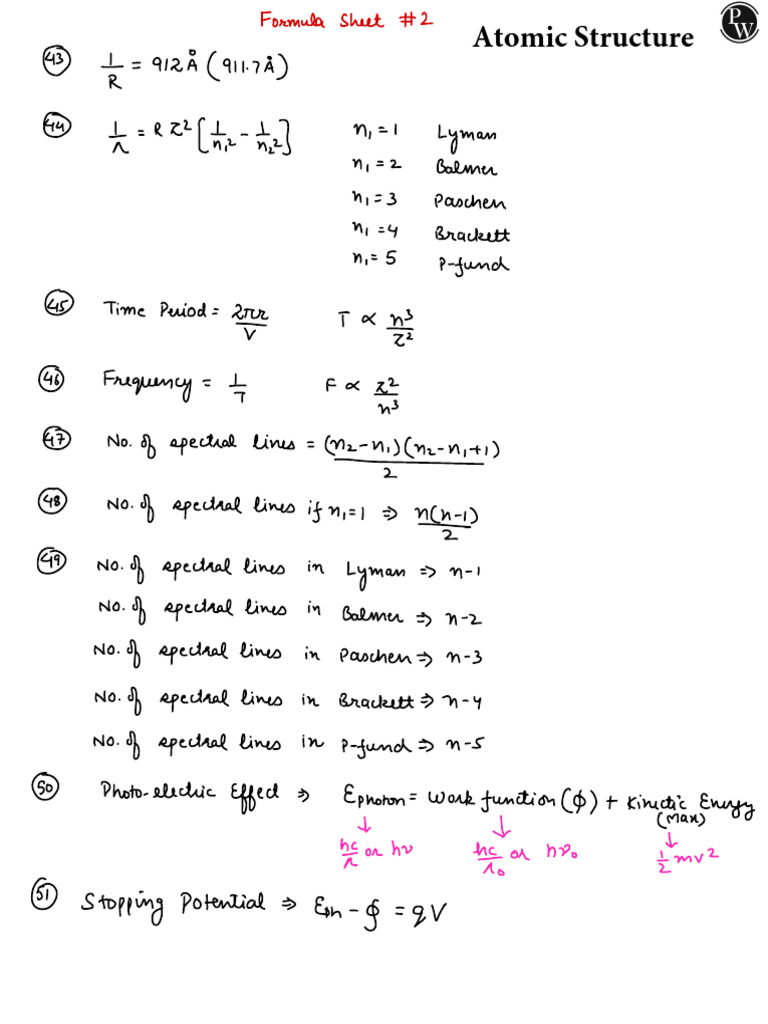 Formula Sheet #2
Atomic Structure
PW
43 1/R = 912 Å (911.7 Å)
44 1/λ = R Z² [1/n₁² - 1/n₂²]
n₁ = 1 Lyman
n₁ = 2 Balmer
n₁ = 3 Paschen
n₁ = 4 Brackett
n₁ = 5 P-fund
45 Time Period = 2πr/V T ∝ n³/Z²
46 Frequency = 1/T F ∝ Z²/n³
47 No. of spectral lines = (n₂-n₁)(n₂-n₁+1)/2
48 No. of spectral lines if n₁=1 ⇒ n(n-1)/2
49 No. of spectral lines in Lyman ⇒ n-1
No. of spectral lines in Balmer ⇒ n-2
No. of spectral lines in Paschen ⇒ n-3
No. of spectral lines in Brackett ⇒ n-4
No. of spectral lines in P-fund ⇒ n-5
50 Photo-electric Effect ⇒ Ephoton = work function (ϕ) + Kinetic Energy
(Max)
↓ ↓ ↓
hc/λ or hν hc/λ₀ or hν₀ 1/2 mv²
51 Stopping Potential ⇒ Eph - ϕ = qV